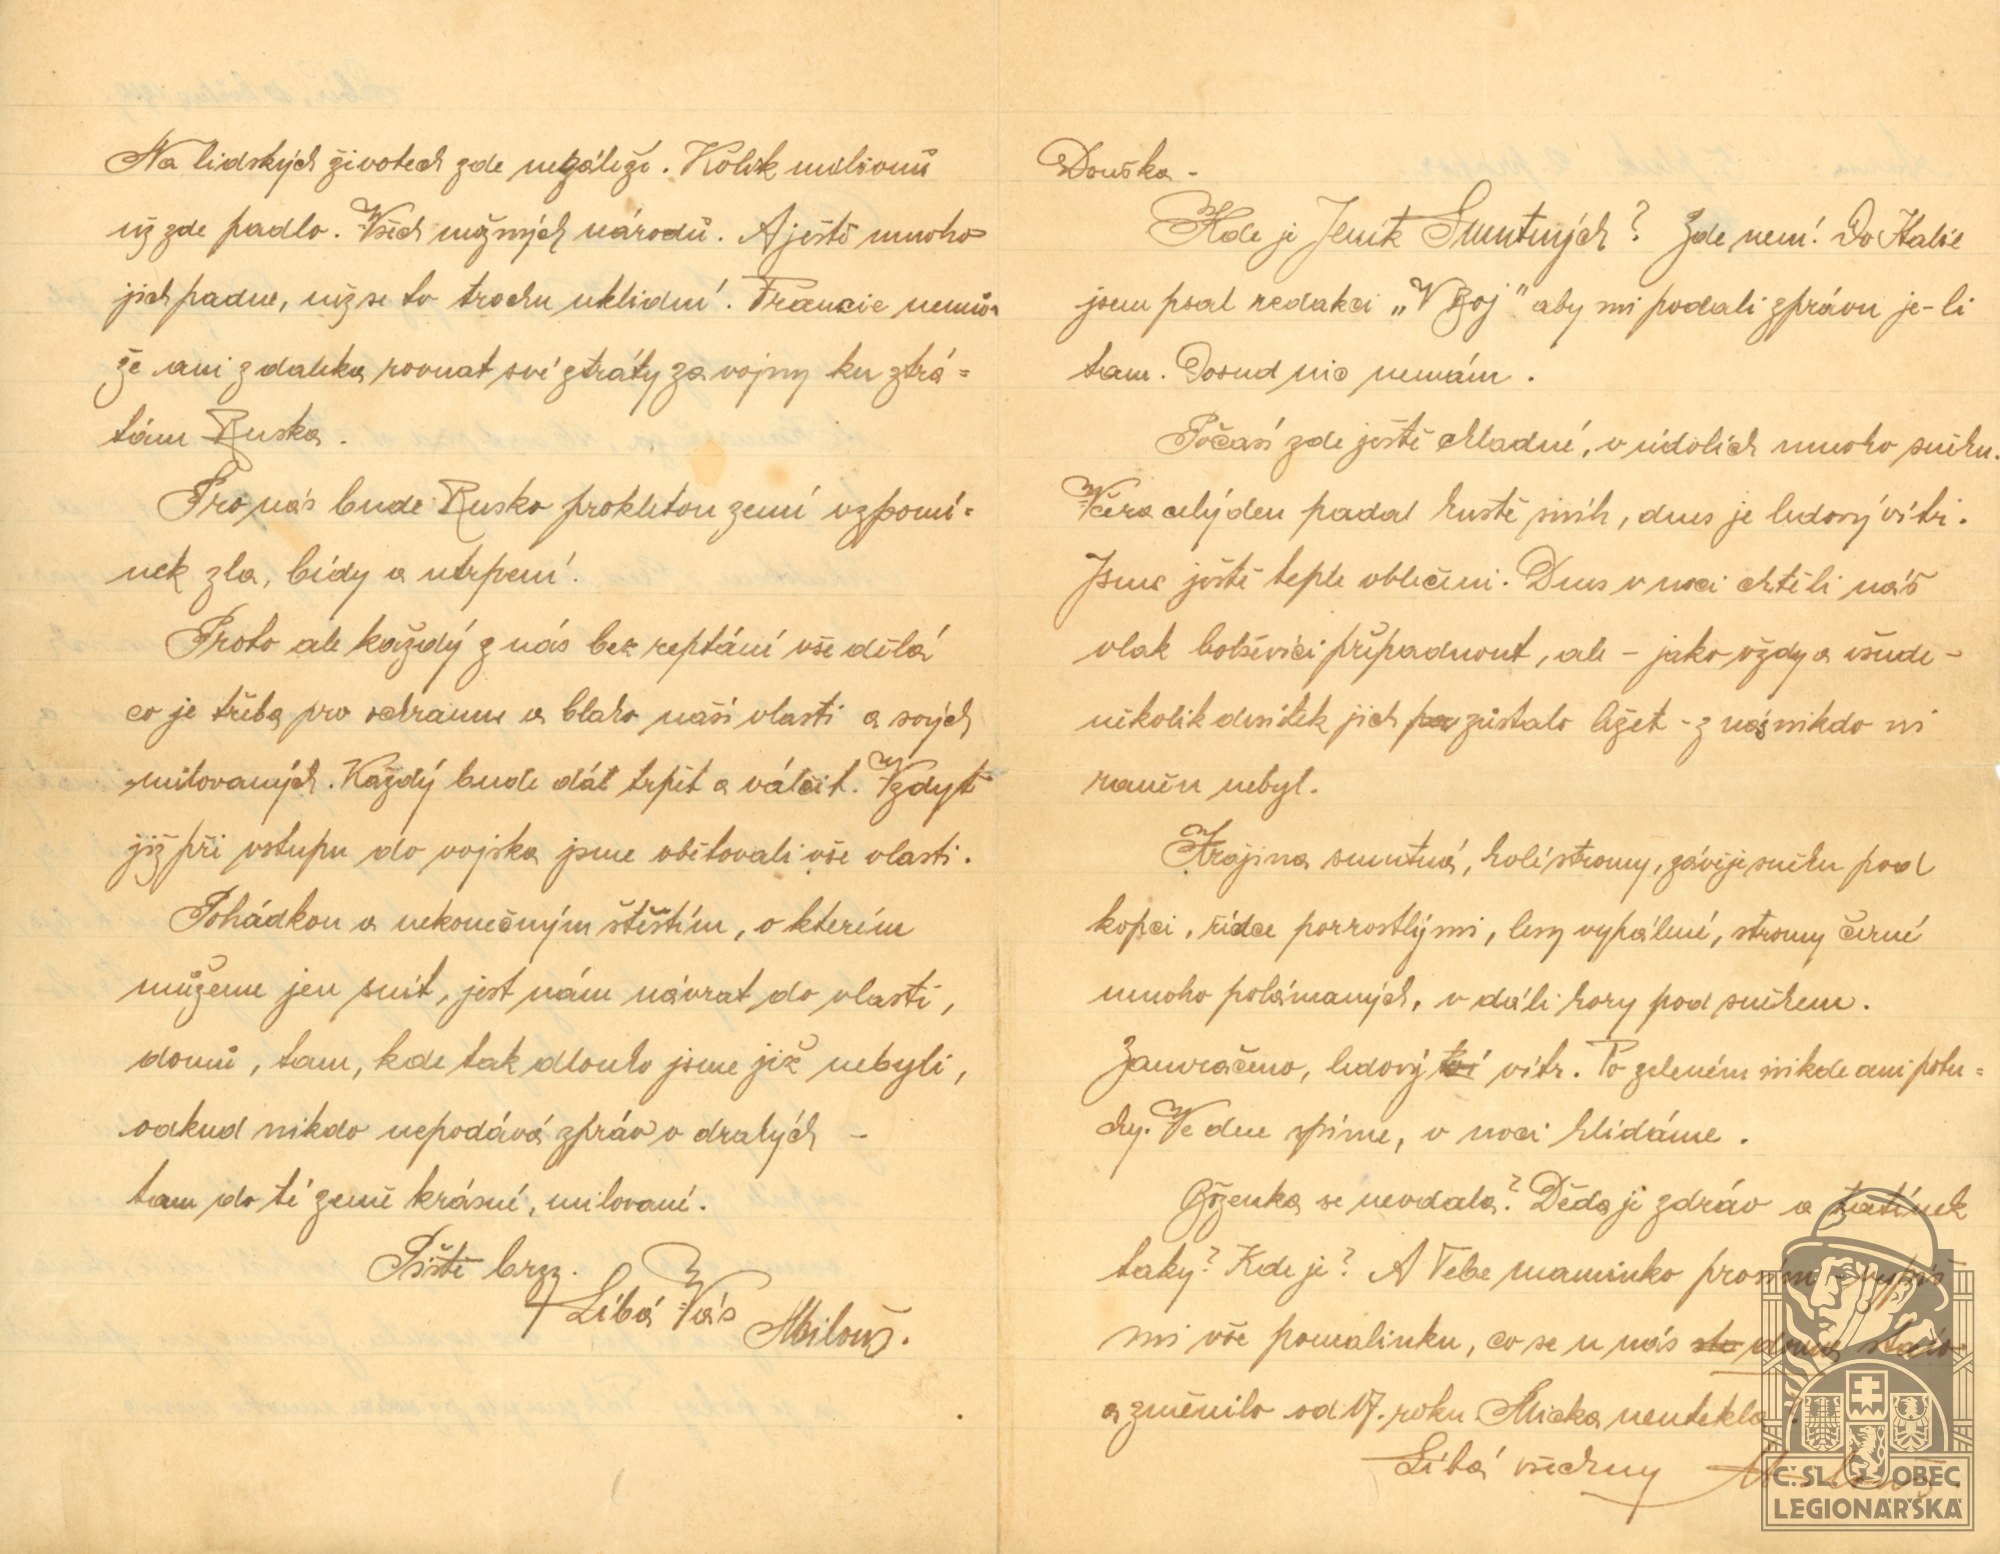 Na lidských životech zde nezáleží. Kolik milionů
už zde padlo. Všech možných národů. A ještě mnoho
jich padne, než se to trochu uklidní. Francie nemů-
že ani z daleka rovnat své ztráty za vojny ku ztrá=
tám Ruska.
Pro nás bude Rusko prokletou zemí vzpomí=
nek zla, bídy a utrpení.
Proto ale každý z nás bez reptání vše dělá
co je třeba pro ochranu a blaho naší vlasti a svých
milovaných. Každý bude dál trpět a válčit. Vždyť
již při vstupu do vojska jsme obětovali vše vlasti.
Pohádkou a nekonečným štěstím, o kterém
můžeme jen snít, jest nám návrat do vlasti,
domů, tam, kde tak dlouho jsme již nebyli,
odkud nikdo nepodává zpráv o drahých –
tam do té země krásné, milované.
Pište brzy.
Líbá Vás Milouš.
Douška -
Kde je Jeník Smutných? Zde není. Do Italie
jsem psal redakci „V Boj" aby mi podali zprávu je-li
tam. Dosud nic nemám.
Počasí zde ještě chladné, v údolích mnoho sněhu.
Včera celý den padal hustě sníh, dnes je ledový vítr.
Jsme ještě teple oblečeni. Dnes v noci chtěli náš
vlak bolševici přepadnout, ale – jako vždy a všude –
několik desítek jich zůstalo ležet – z nás nikdo ni
raněn nebyl.
Krajina smutná, holé stromy, závěje sněhu pod
kopci, řídce porrostlými, lesy vypálené, stromy černé
mnoho polámaných, v dáli hory pod sněhem.
Zamračeno, ledový vítr. Po zeleném nikde ani potu=
chy. Ve dne spíme, v noci hlídáme.
Boženka se neodala? Děda je zdráv a tatínek
taky? Kde je? A Tebe maminko prosím vypiš
mi vše pomalinku, co se u nás doma stalo
a změnilo od 17. roku. Micka neutekla?
Líbá všechny Milouš
Č.SL. OBEC
LEGIONÁŘSKÁ